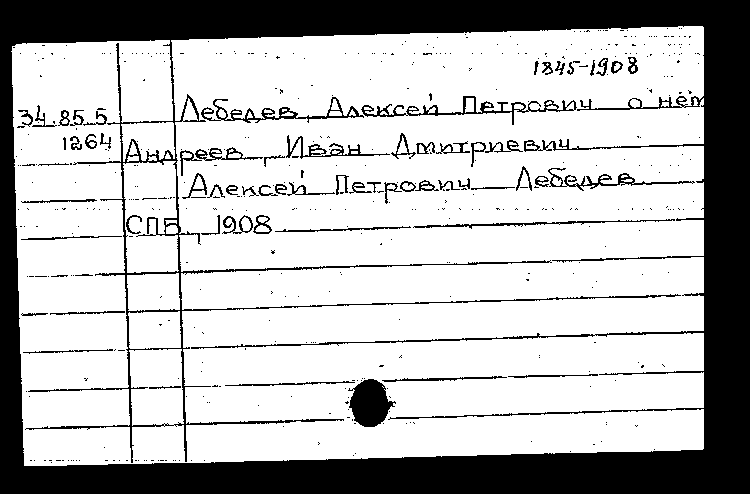 1845-1908
34.85.5 Лебедев, Алексей Петрович о нём
1264 Андреев, Иван Дмитриевич.
Алексей Петрович Лебедев.
СПБ, 1908